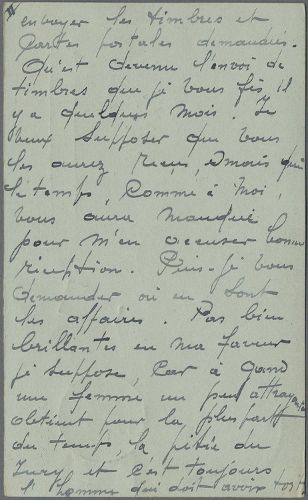 II
envoyer les timbres et
Cartes postales demandés.
Qu'est devenu l'envoi de
timbres que je vous fis il
y a quelques mois. Je
veux supposer que vous
les aurez, reçus, mais que
le temps, Comme à moi,
vous aura manqué
pour m'en accuser bonne
réception. Puis-je vous
demander où en sont
les affaires. Pas bien
brillantes en ma faveur
je suppose, Car à Gand
une femme un peu attrayante
obtient pour la plupart
du temps, la pitié du
Jury et c'est toujours
l'homme qui doit avoir tort